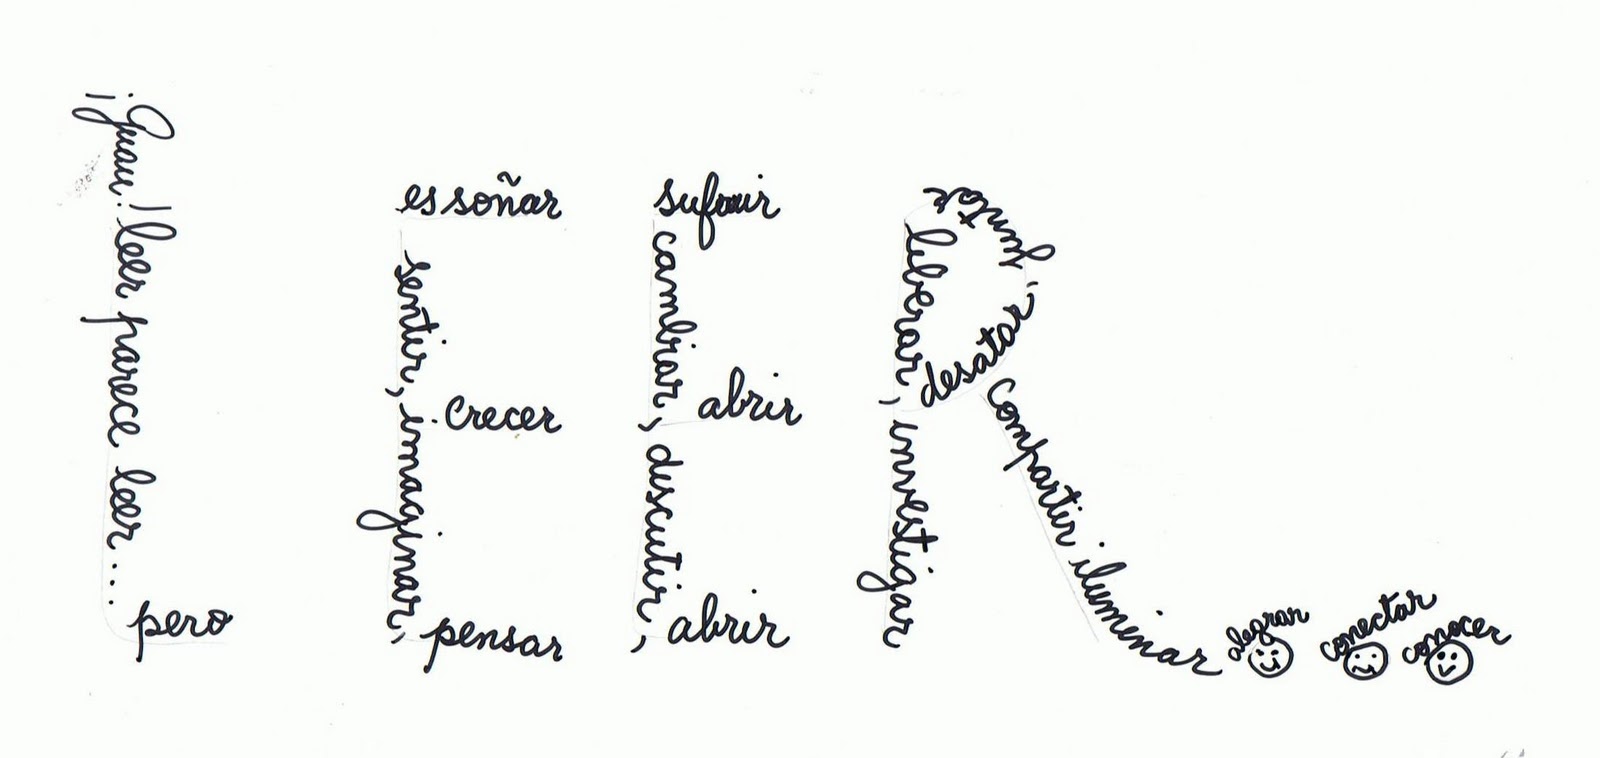 ¡Guau! leer parece leer...
pero
es soñar
sentir, imaginar,
crecer
pensar
cambiar, discutir,
abrir
abrir
liberar, investigar
juntar,
desatar
compartir iluminar
alegrar
conectar
conocer